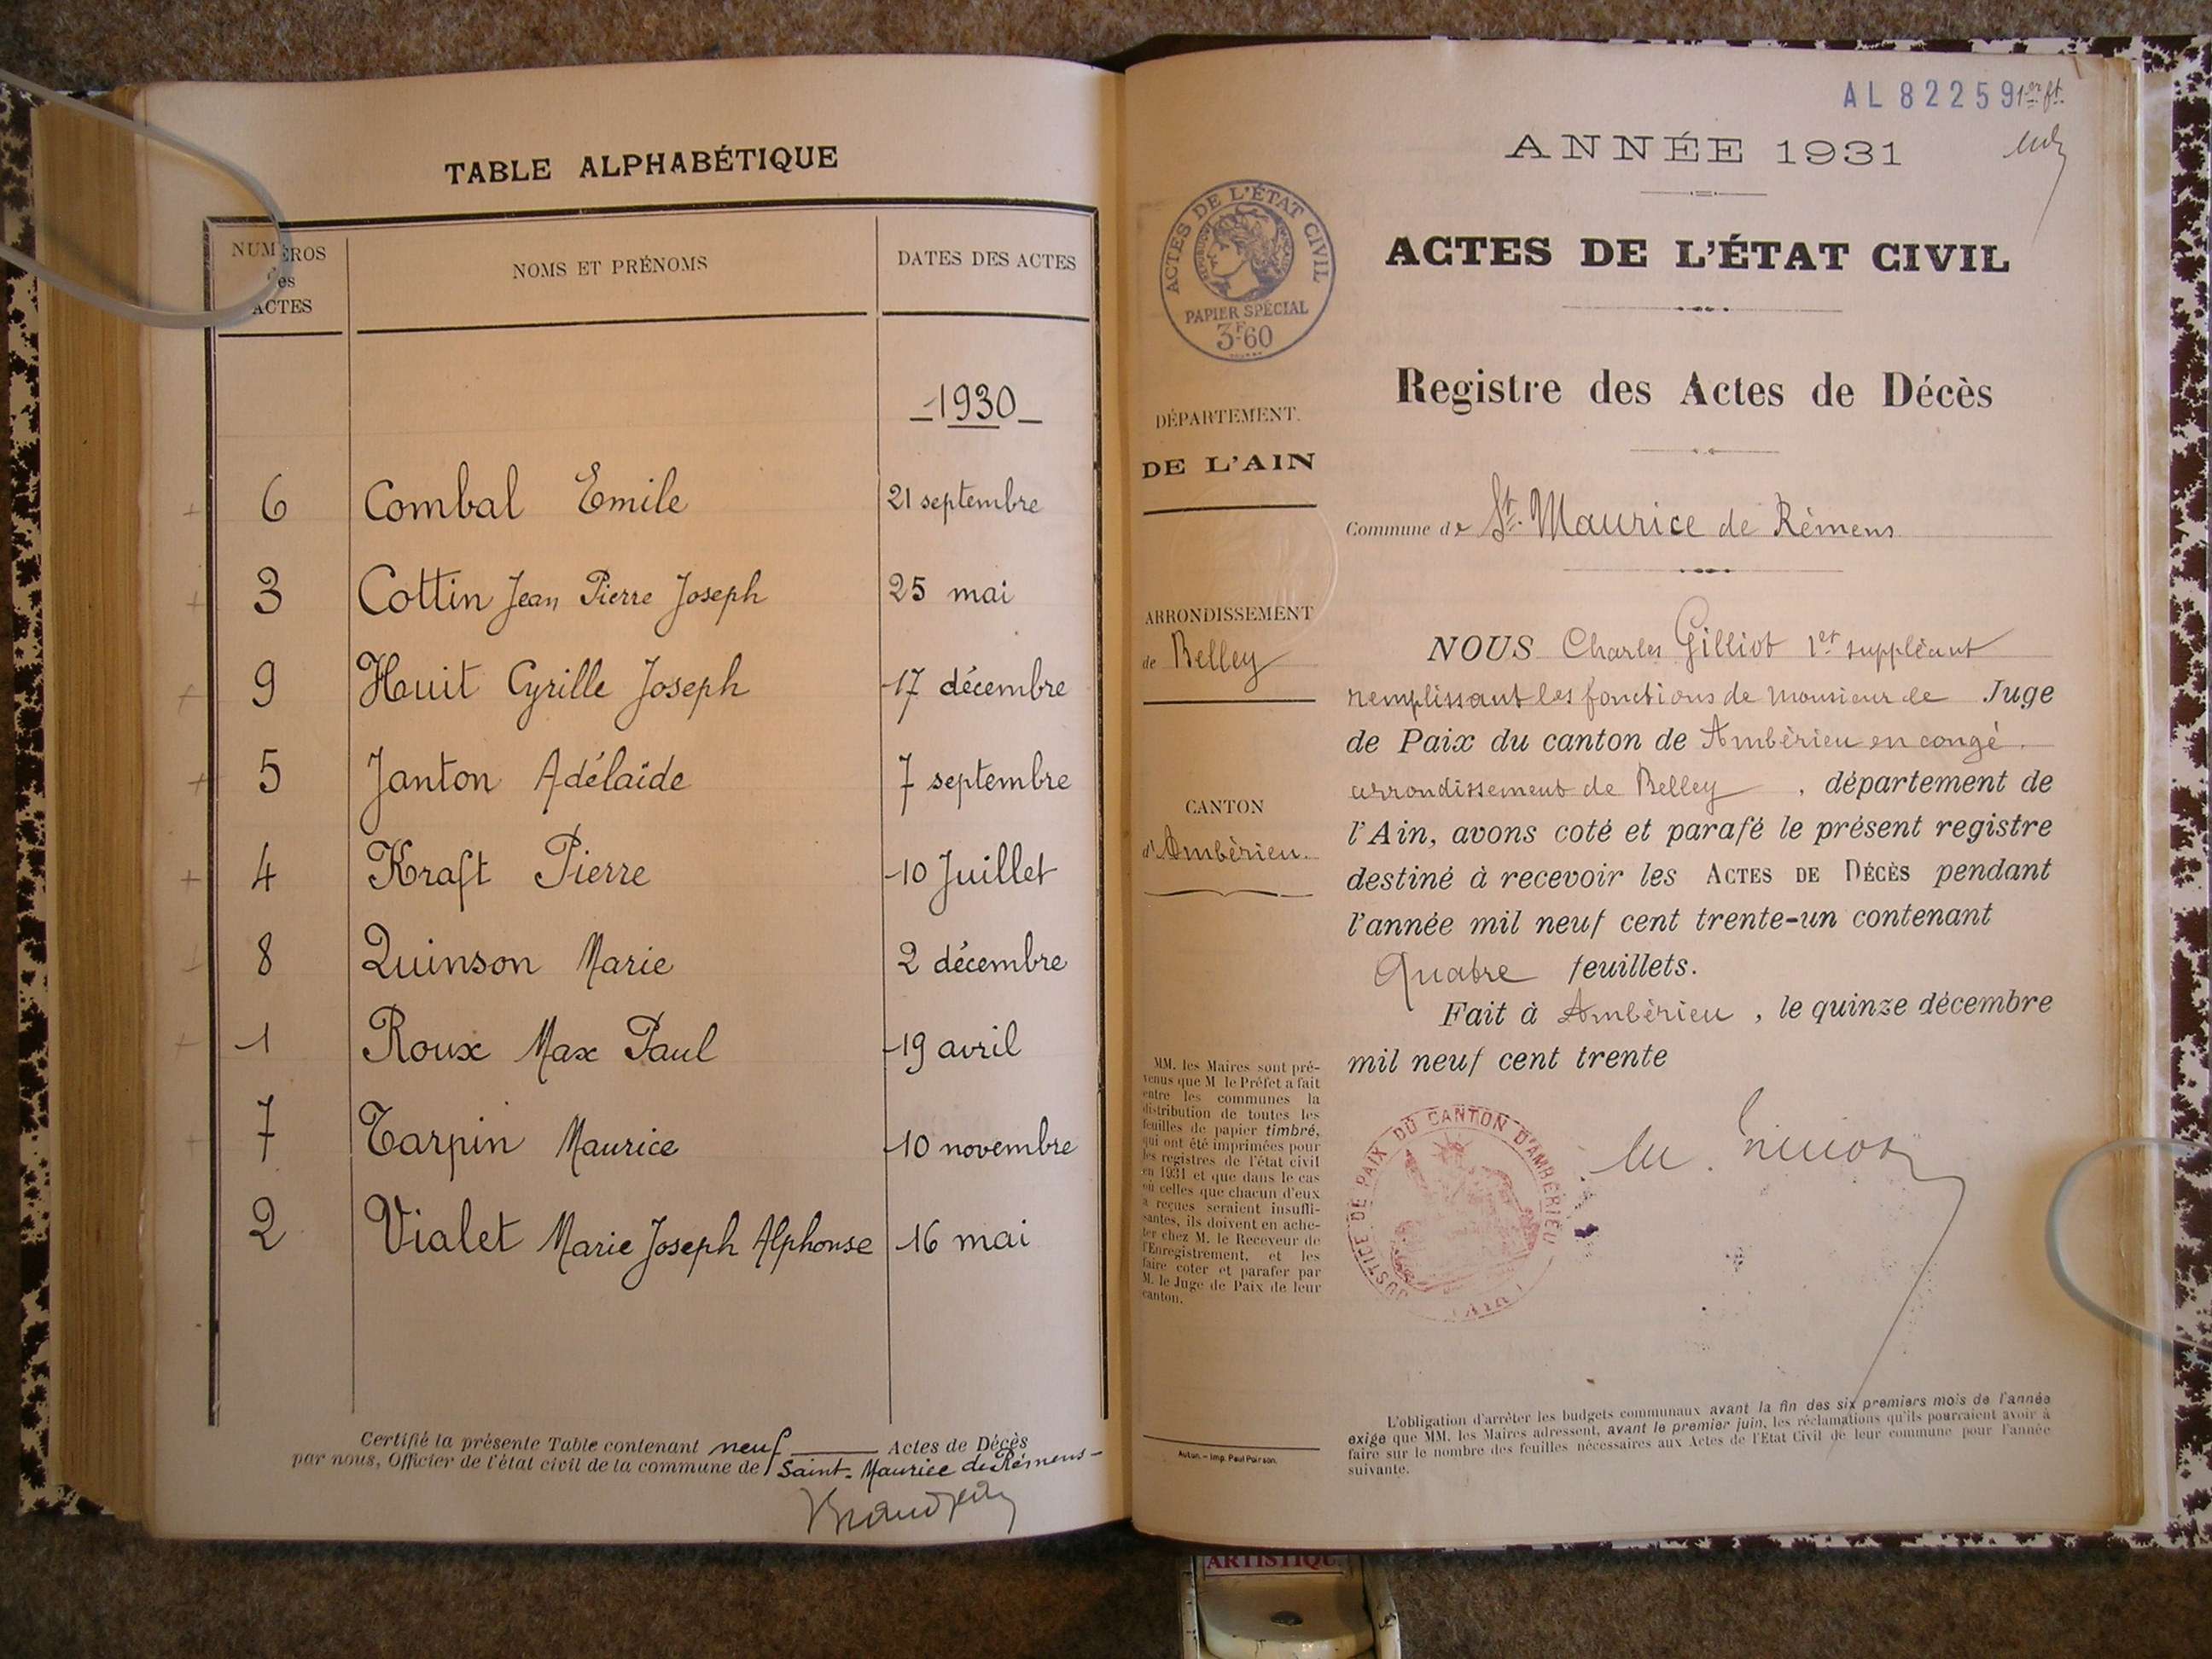 TABLE ALPHABÉTIQUE
NUMÉROS des ACTES
NOMS ET PRÉNOMS
DATES DES ACTES
1930
6 Combal Emile 21 septembre
3 Cottin Jean Pierre Joseph 25 mai
9 Huit Cyrille Joseph 17 décembre
5 Janton Adélaïde 7 septembre
4 Kraft Pierre 10 Juillet
8 Quinson Marie 2 décembre
1 Roux Max Paul 19 avril
7 Tarpin Maurice 10 novembre
2 Vialet Marie Joseph Alphonse 16 mai
Certifié la présente Table contenant neuf Actes de Décès
par nous, Officier de l'état civil de la commune de Saint-Maurice de Rémens
AL 82259 1er ft.
ANNÉE 1931
ACTES DE L'ÉTAT CIVIL
ACTES DE L'ÉTAT CIVIL
PAPIER SPÉCIAL
3F60
Registre des Actes de Décès
DÉPARTEMENT
DE L'AIN
Commune de St. Maurice de Rémens
ARRONDISSEMENT
de Belley
CANTON
d'Ambérieu.
NOUS Charles Gilliot 1er suppléant
remplissant les fonctions de Monsieur le Juge
de Paix du canton de Ambérieu en congé.
arrondissement de Belley, département de
l'Ain, avons coté et parafé le présent registre
destiné à recevoir les ACTES DE DÉCÈS pendant
l'année mil neuf cent trente-un contenant
Quatre feuillets.
Fait à Ambérieu, le quinze décembre
mil neuf cent trente
MM. les Maires sont pré-
venus que M le Préfet a fait
entre les communes la
distribution de toutes les
feuilles de papier timbré,
qui ont été imprimées pour
les registres de l'état civil
en 1931 et que dans le cas
où celles que chacun d'eux
a reçues seraient insuffi-
santes, ils doivent en ache-
ter chez M. le Receveur de
l'Enregistrement, et les
faire coter et parafer par
M. le Juge de Paix de leur
canton.
JUSTICE DE PAIX DU CANTON D'AMBÉRIEU
(AIN)
L'obligation d'arrêter les budgets communaux avant la fin des six premiers mois de l'année
exige que MM. les Maires adressent, avant le premier juin, les réclamations qu'ils pourraient avoir à
faire sur le nombre des feuilles nécessaires aux Actes de l'Etat Civil de leur commune pour l'année
suivante.
Autun. — Imp. Paul Poirson.
ARTISTIQU